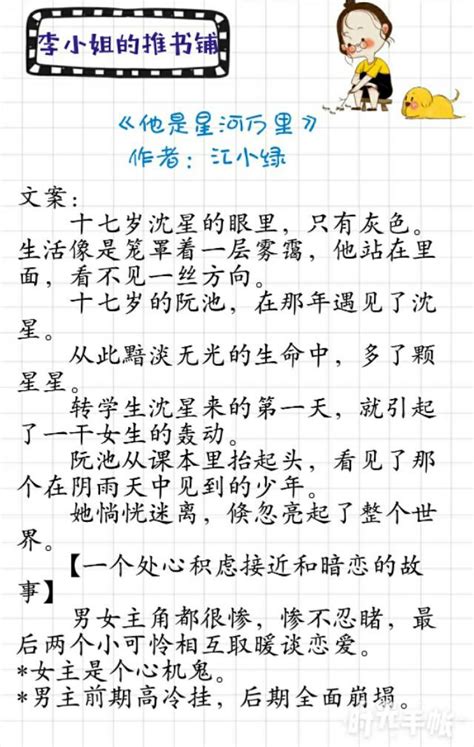 李小姐的推书铺
《他是星河万里》
作者：江小绿
文案：
十七岁沈星的眼里，只有灰色。
生活像是笼罩着一层雾霭，他站在里
面，看不见一丝方向。
十七岁的阮池，在那年遇见了沈
星。
从此黯淡无光的生命中，多了颗
星星。
转学生沈星来的第一天，就引起
了一干女生的轰动。
阮池从课本里抬起头，看见了那
个在阴雨天中见到的少年。
她惝恍迷离，倏忽亮起了整个世
界。
【一个处心积虑接近和暗恋的故
事】
男女主角都很惨，惨不忍睹，最
后两个小可怜相互取暖谈恋爱。
*女主是个心机鬼。
*男主前期高冷挂，后期全面崩塌。
时光手帐